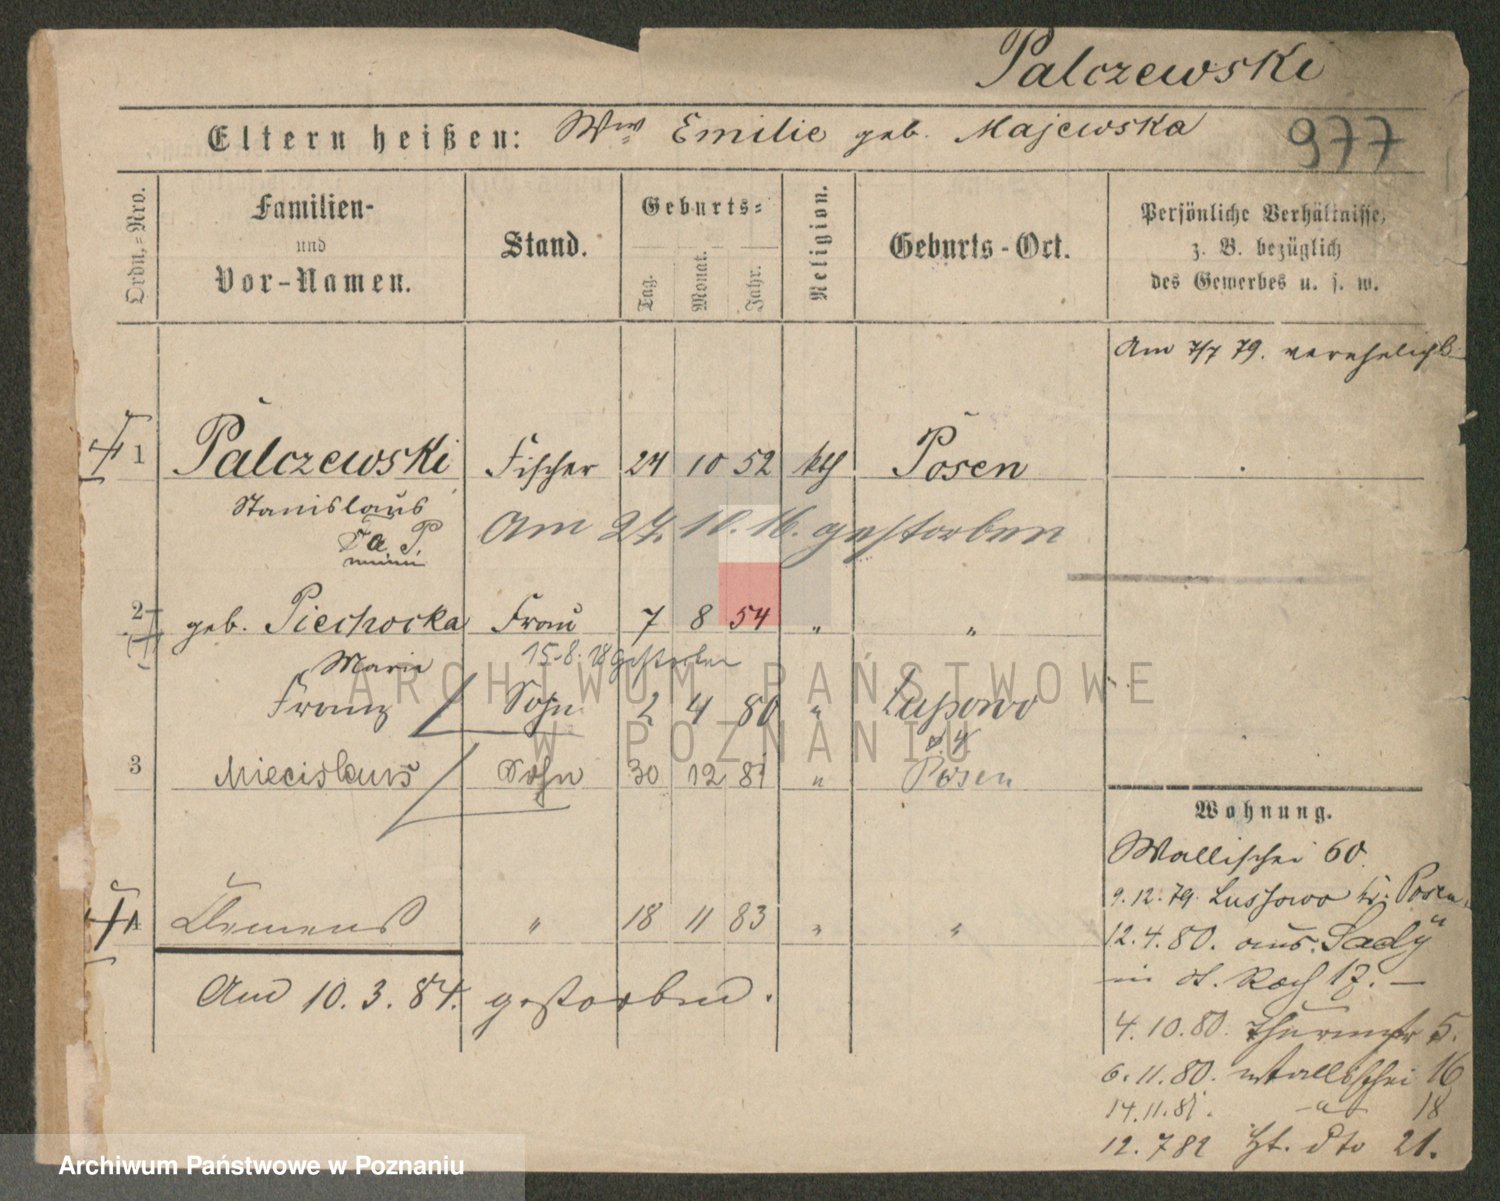 Palczewski
Eltern heißen: Ww Emilie geb. Majewska
977
Ordn.-Nro.
Familien-
und
Vor-Namen.
Stand.
Geburts-
Tag.
Monat.
Jahr.
Religion.
Geburts-Ort.
Persönliche Verhältnisse,
z. B. bezüglich
des Gewerbes u. s. w.
Am 7/7 79. verehelicht
1 Palczewski Fischer 24 10 52 kth Posen
Stanislaus
Am 24. 10. 16. gestorben
2 geb. Piechocka Frau 7 8 54 " "
Marie 15.8.18 gestorben
Franz Sohn 2 4 80 "
3 Miecislaus Sohn 30 12 81 " Posen
Wohnung.
Wallischei 60.
9.12.79. Lussowo Kr. Posen
4 Clemens " 18 11 83 " "
12.4.80. aus Sady
in 17. —
Am 10.3.84. gestorben.
4.10.80. 5.
6.11.80. Wallischei 16
14.11.81. 18
12.7 82 dto 21.
ARCHIWUM PAŃSTWOWE
W POZNANIU
Archiwum Państwowe w Poznaniu